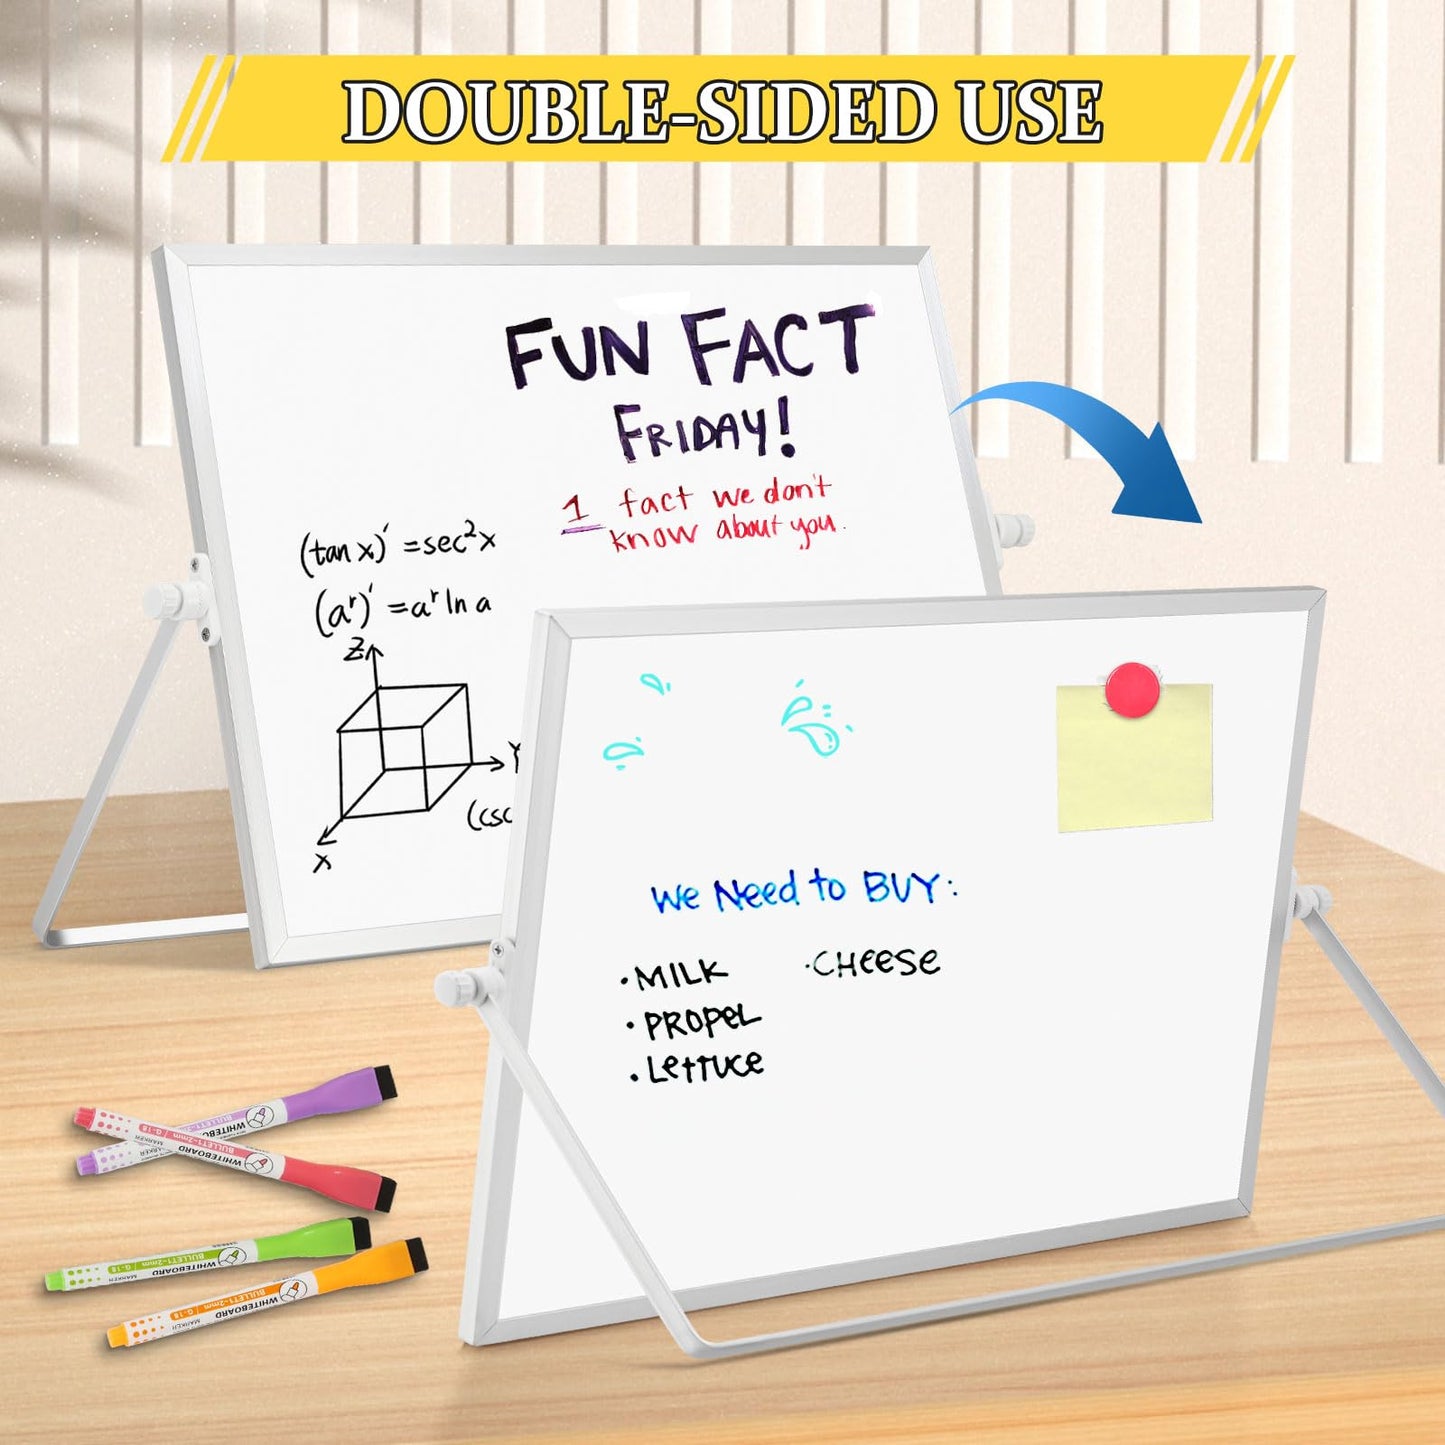 DOUBLE-SIDED USE
FUN FACT
FRIDAY!
1 fact we don't
know about you.
(tan x)' = sec²x
(aʳ)' = aʳ ln a
Z
Y
X
(csc
We Need to BUY:
·MILK
·CHEESE
·PROPEL
·LETTUCE
WHITEBOARD
MARKER
BULLET1-2mm G-18
WHITEBOARD
MARKER
BULLET1-2mm G-18
WHITEBOARD
MARKER
BULLET1-2mm G-18
WHITEBOARD
MARKER
BULLET1-2mm G-18